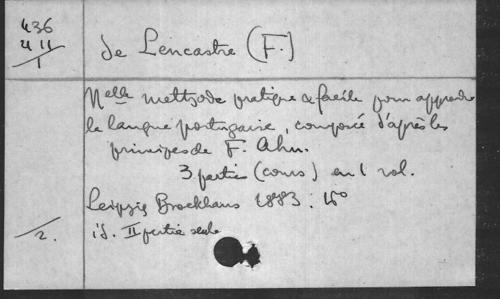 436
411
1
de Lencastre (F.)
Nelle methode pratique & facile pour apprendre
la langue portugaise, composée d'après les
principes de F. Ahn.
3 parties (cours) en 1 vol.
Leipzig Brockhaus 1883 : 16°
2. id. II partie seule